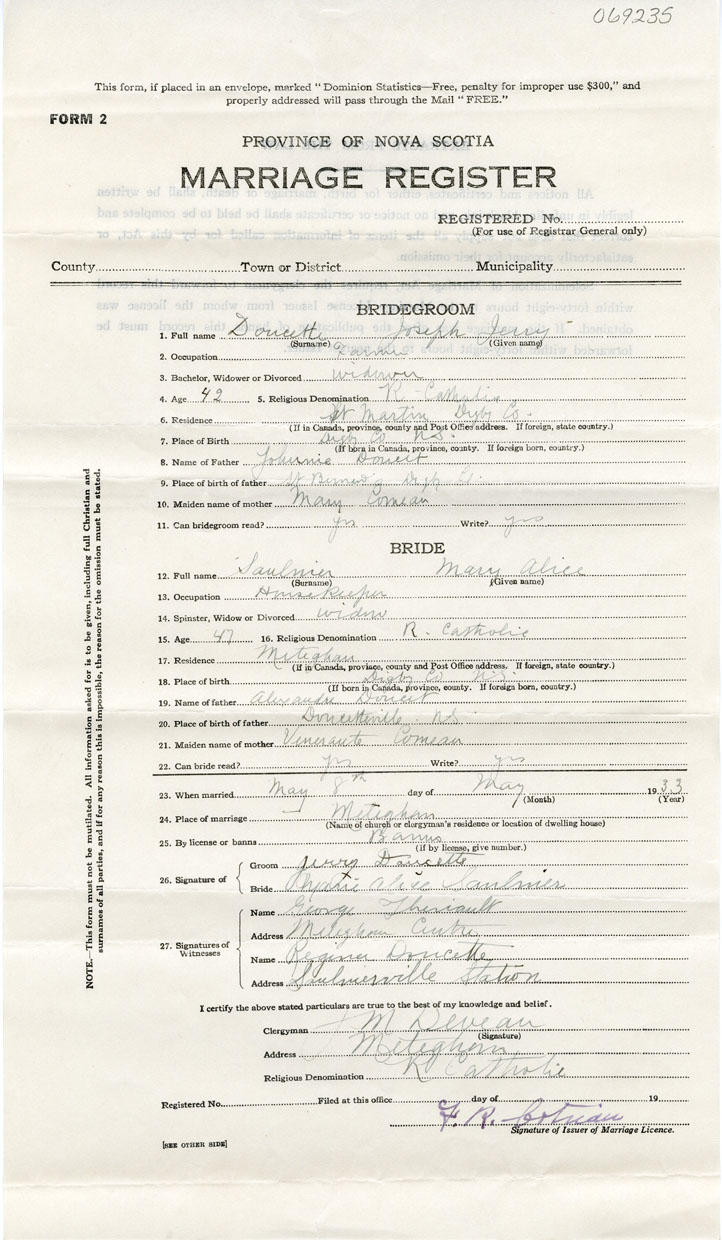 069235
This form, if placed in an envelope, marked "Dominion Statistics—Free, penalty for improper use $300," and
properly addressed will pass through the Mail "FREE."
FORM 2
PROVINCE OF NOVA SCOTIA
MARRIAGE REGISTER
REGISTERED No.
(For use of Registrar General only)
County Town or District Municipality
BRIDEGROOM
1. Full name Doucette Joseph Jerry
(Surname) (Given name)
2. Occupation Farmer
3. Bachelor, Widower or Divorced widower
4. Age 42 5. Religious Denomination R-Catholic
6. Residence St Martin Digby Co.
(If in Canada, province, county and Post Office address. If foreign, state country.)
7. Place of Birth Digby Co N.S.
(If born in Canada, province, county. If foreign born, country.)
8. Name of Father Johnnie Doucet
9. Place of birth of father St Digby Co.
10. Maiden name of mother Mary Comeau
11. Can bridegroom read? yes Write? yes
BRIDE
12. Full name Saulnier Mary Alice
(Surname) (Given name)
13. Occupation Housekeeper
14. Spinster, Widow or Divorced widow
15. Age 47 16. Religious Denomination R. Catholic
17. Residence Meteghan
(If in Canada, province, county and Post Office address. If foreign, state country.)
18. Place of birth Digby Co N.S.
(If born in Canada, province, county. If foreign born, country.)
19. Name of father Alexandre Doucet
20. Place of birth of father Doucetteville N.S.
21. Maiden name of mother Comeau
22. Can bride read? yes Write? yes
23. When married May 8th day of May 1933
(Month) (Year)
24. Place of marriage Meteghan
(Name of church or clergyman's residence or location of dwelling house)
25. By license or banns Banns
(if by license, give number.)
26. Signature of
Groom Jerry Doucette
Bride Alice Saulnier
27. Signatures of Witnesses
Name George Theriault
Address Meteghan Centre
Name Doucette
Address Saulnierville Station
I certify the above stated particulars are true to the best of my knowledge and belief.
Clergyman M Deveau
(Signature)
Address Meteghan
Religious Denomination R Catholic
Registered No. Filed at this office day of 19
F. R.
Signature of Issuer of Marriage Licence.
[SEE OTHER SIDE]
NOTE.—This form must not be mutilated. All information asked for is to be given, including full Christian and
surnames of all parties, and if for any reason this is impossible, the reason for the omission must be stated.